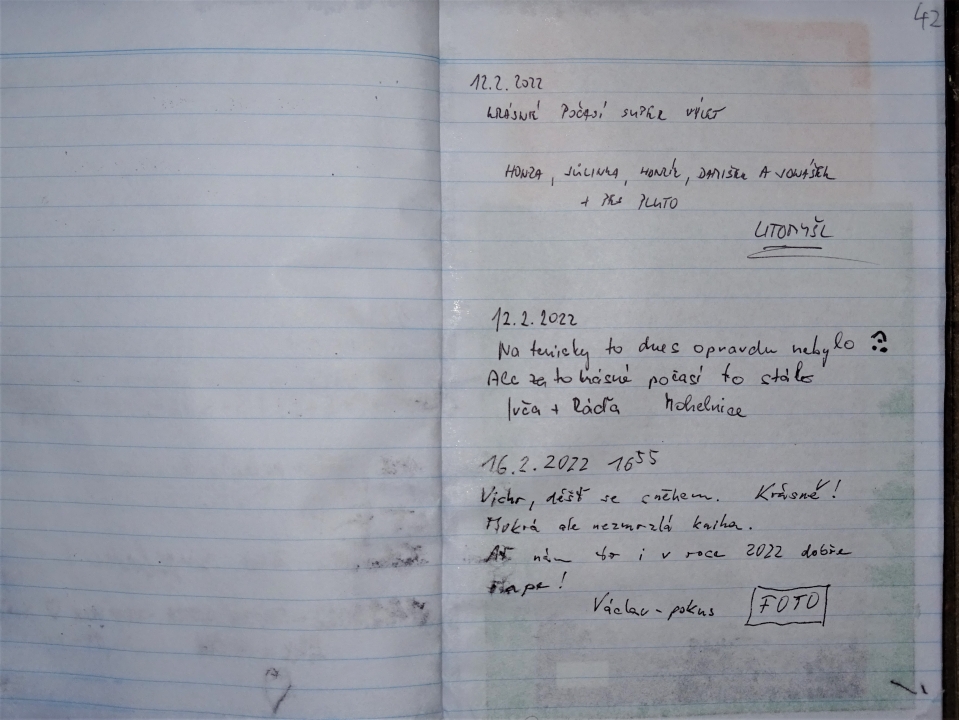 42
12.2.2022
KRÁSNÉ POČASÍ SUPER VÝLET
HONZA, JŮLINKA, HONZÍK, DAMIŠEK A JONÁŠEK
+ PES PLUTO
LITOMYŠL
12.2.2022
Na tenisky to dnes opravdu nebylo
Ale za to krásné počasí to stálo
Ivča + Ráďa Mohelnice
16.2.2022 16⁵⁵
Vichr, déšť se sněhem. Krásně!
Mokrá ale nezmrzlá kniha.
Ať nám to i v roce 2022 dobře
šlape!
Václav - pokus FOTO